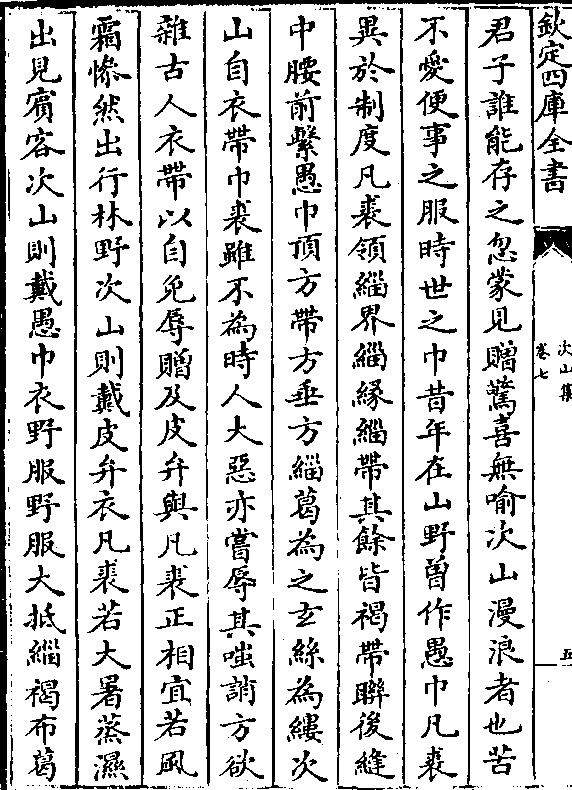 欽定四庫全書
次山集
卷七
五
君子誰能存之忽蒙見贈驚喜無喻次山漫浪者也苦
不愛便事之服時世之巾昔年在山野曽作愚巾凡裘
異於制度凡裘領緇界緇緣緇帶其餘皆褐帶聯後縫
中腰前繫愚巾頂方帶方垂方緇葛為之𤣥絲為縷次
山自衣帶巾裘雖不為時人大惡亦嘗辱其嗤誚方欲
雜古人衣帶以自免辱贈及皮弁與凡裘正相宜若風
霜慘然出行林野次山則戴皮弁衣凡裘若大暑蒸濕
出見賓客次山則戴愚巾衣野服野服大抵緇褐布葛